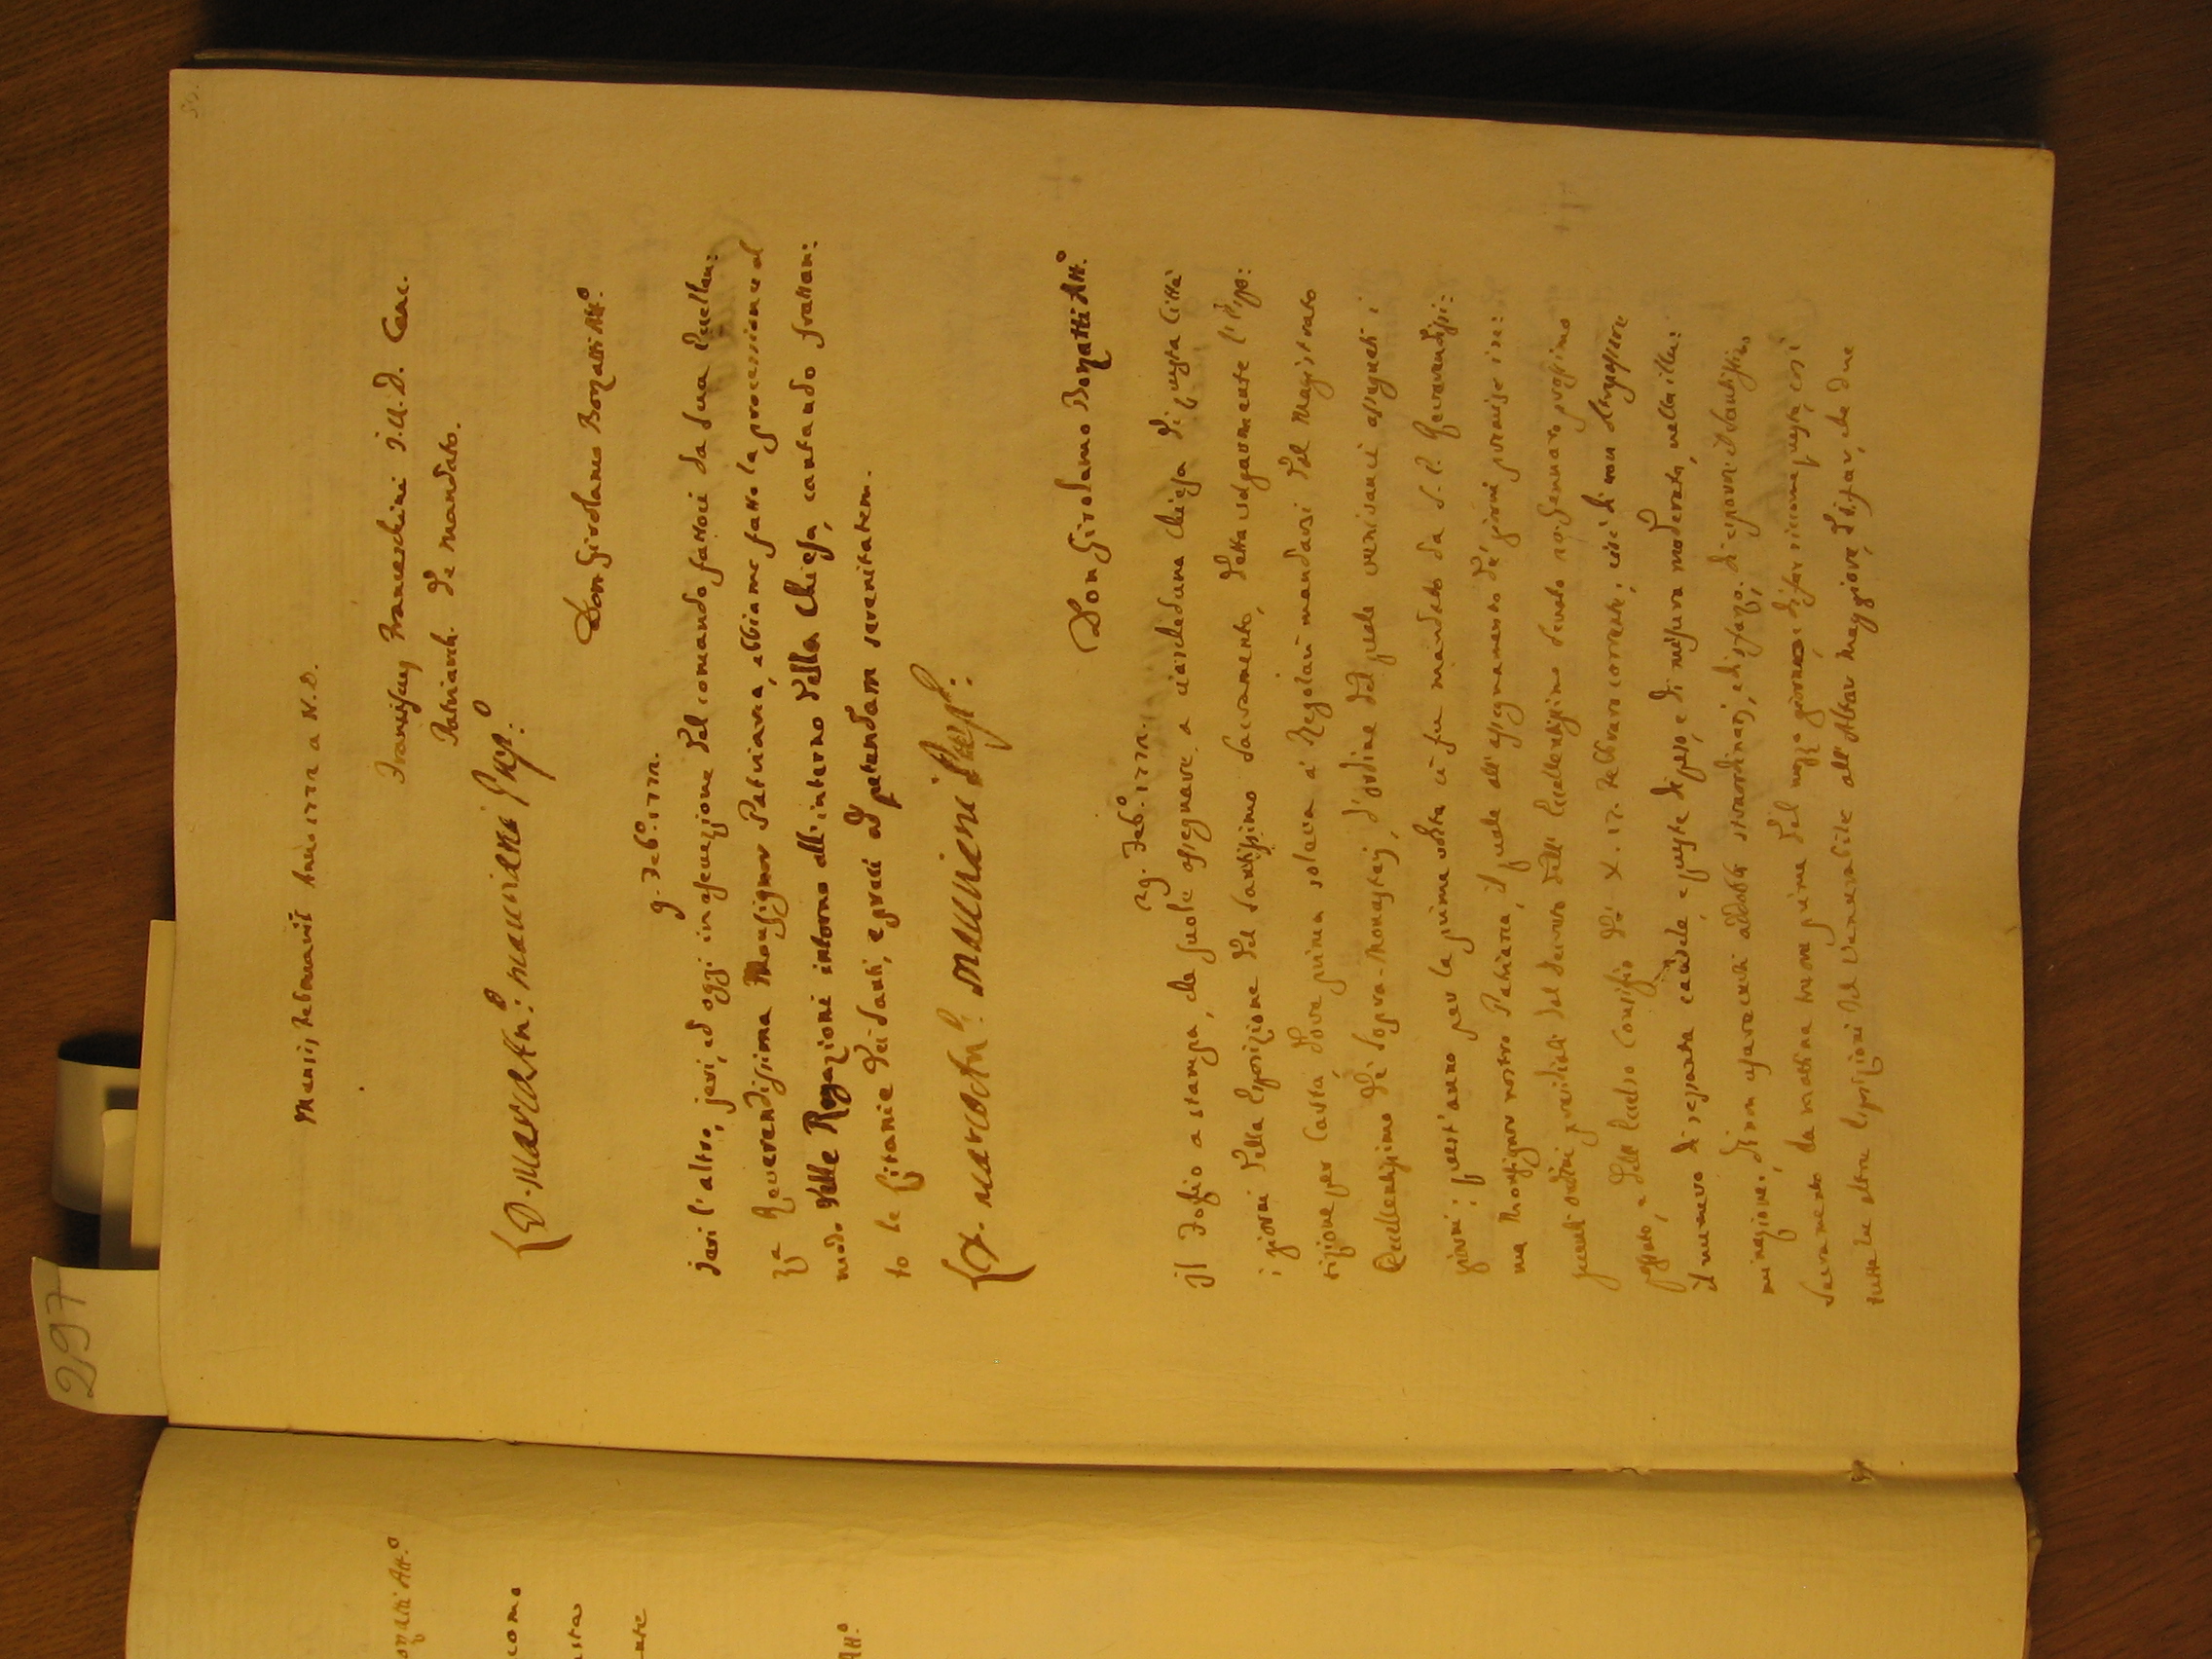 Mensis Februarii Anno 1772 a N.D.
Franciscus Franceschini J.U.D. Canc.
Patriarch. de mandato.
D. Marc'Ant.o: Mauriani Prep.o:
Don Girolamo Bonzatti Att.o
9. Feb.o 1772.
Jeri l'altro, jeri, ed oggi in esecuzione del comando fattoci da Sua Eccellen:
za Reverendissima Monsignor Patriarca, abbiamo fatto la processione al
modo delle Rogazioni intorno all'interno della Chiesa, cantando frattan:
to le Litanie dei Santi, e preci ad petendam serenitatem.
D. Marc'Ant.o: Mauriani Prep.o:
Don Girolamo Bonzatti Att.o
29. Feb.o 1772.
Il Foglio a stampa, che suole assegnare a ciascheduna Chiesa di questa Città
i giorni della Esposizione del Santissimo Sacramento, detta volgarmente l'Espo:
sizione per Carta, dove prima soleva a' Regolari mandarsi dal Magistrato
Eccellentissimo de' Sopra-Monasterj, d'ordine del quale venivano assegnati i
giorni; quest'anno per la prima volta ci fu mandato da S. E. Reverendissi:
ma Monsignor nostro Patriarca, il quale all'assegnamento de' giorni premise i se:
guenti ordini prescritti dal decreto dell'Eccellentissimo Senato Gennaro prossimo
passato, e dell'Eccelso Consiglio de' X. 17. Febbraro corrente, cioè di non oltrepassare
il numero di sessanta candele, e queste di peso, e di misura moderata, nella illu:
minazione, di non apparecchi addobbi straordinarj, e di sfarzo, di esporsi il Santissimo
Sacramento la mattina non prima del mezzo giorno, e di far siccome questa, così
tutte le altre Esposizioni del Venerabile all'Altar Maggiore, di far, che due
50.
297
onzatti Att.o
come
asta
nte
Att.o